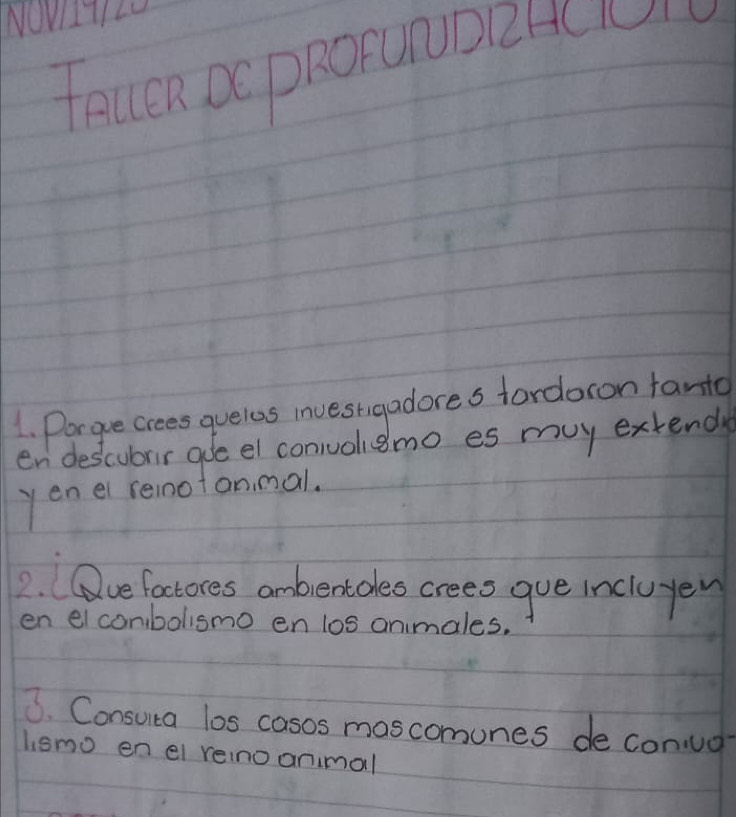 NOV/19/20
TALLER DE PROFUNDIZACION
1. Porque crees quelos investigadores tardaron tanto
en descubrir que el canivalismo es muy extendid
y en el reino animal.
2. ¿Que factores ambientales crees que incluyen
en el canibalismo en los animales.
3. Consulta los casos mas comunes de caniva-
lismo en el reino animal